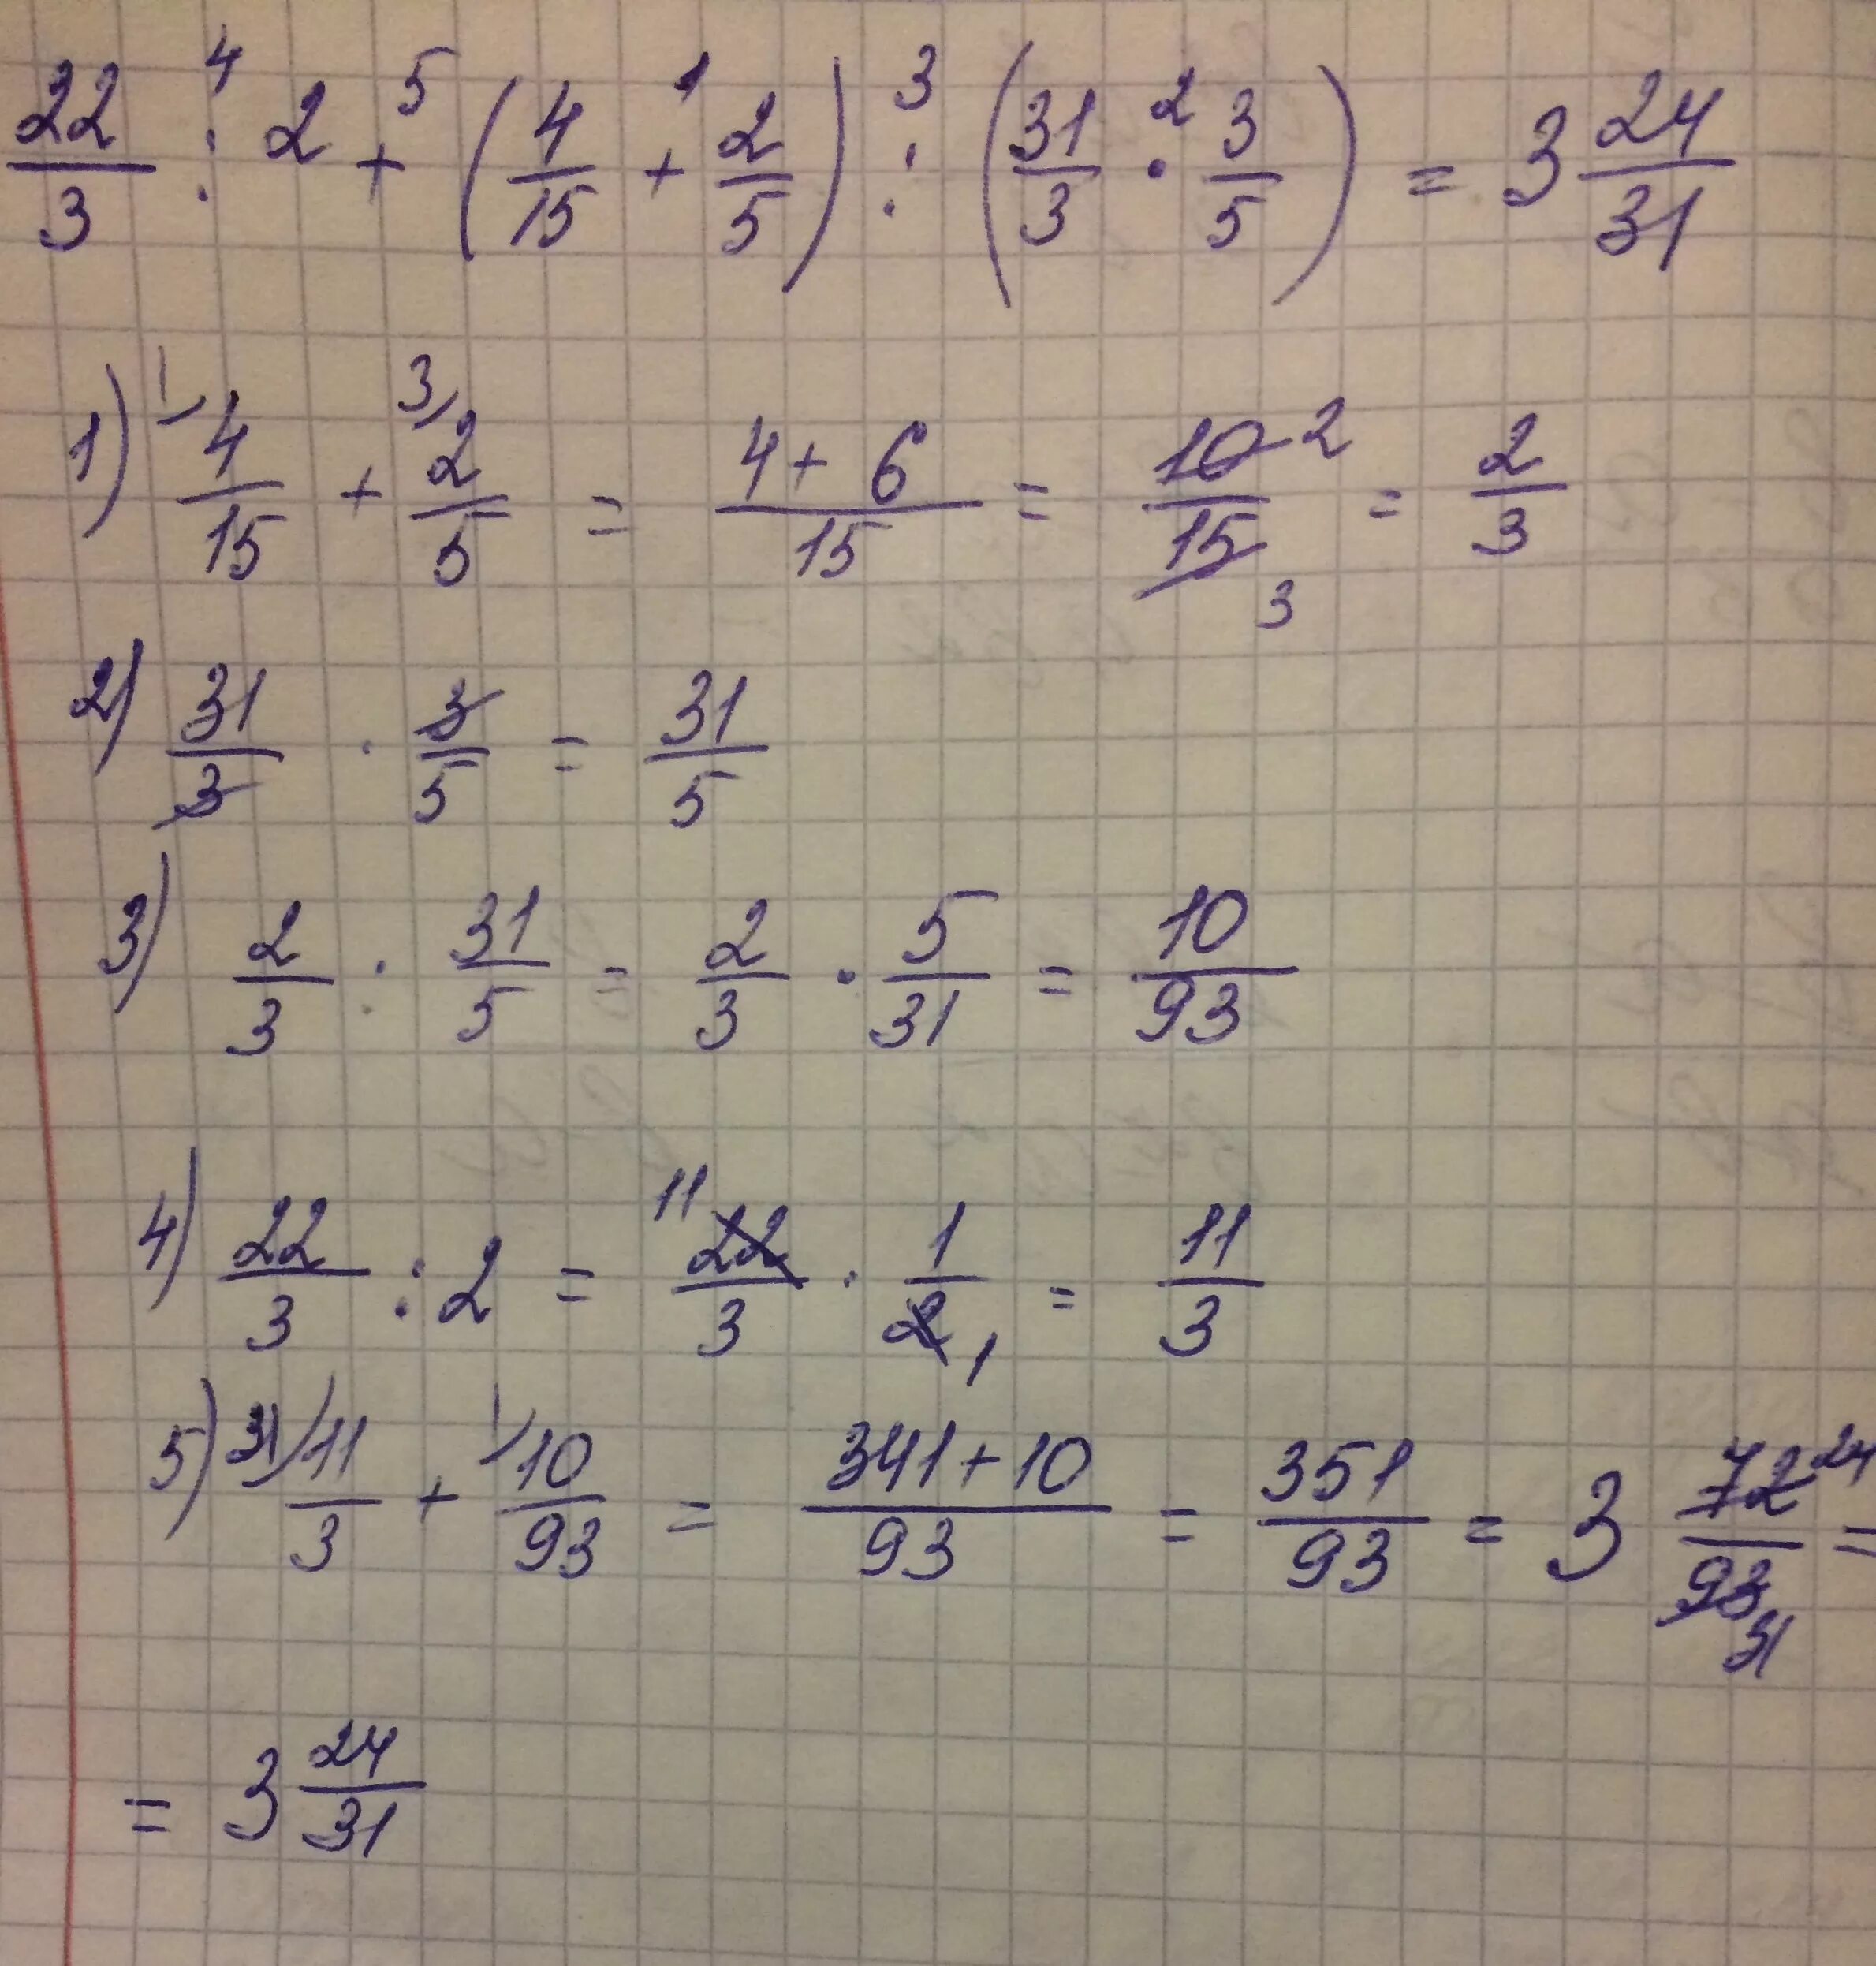 22/3 : 2 + (4/15 + 2/5) : (31/3 · 3/5) = 3 24/31
1) 4/15 + 2/5 = (4+6)/15 = 10/15 = 2/3
2) 31/3 · 3/5 = 31/5
3) 2/3 : 31/5 = 2/3 · 5/31 = 10/93
4) 22/3 : 2 = 22/3 · 1/2 = 11/3
5) 11/3 + 10/93 = (341+10)/93 = 351/93 = 3 72/93 =
= 3 24/31